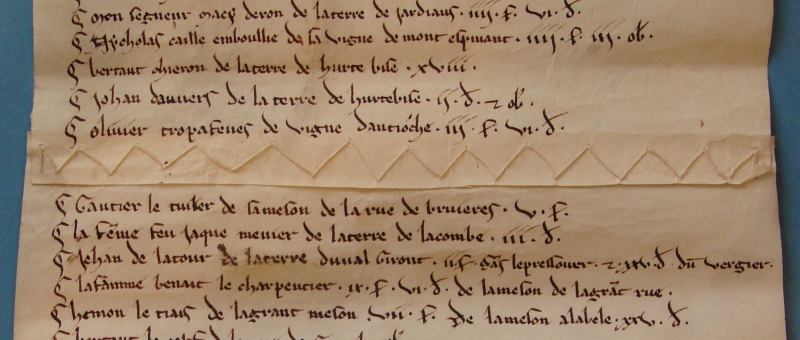 ¶ mon segneur macy deron de laterre de jardiaus · iiii · ſ · vi · d̄ ·
¶ Nycholas caille emboullie de sa vigne de mont espinant · iiii · ſ · iii · ob̄ ·
¶ bertaut chieron de laterre de hurte bise · xviii ·
¶ Johan dauuers de la terre de hurtebise · ii · d̄ · ⁊ ob̄ ·
¶ olivier tropateues de vigne dantioche · iii · ſ · vi · d̄ ·
¶ Gautier le de sameson de la rue de bruieres · v · ſ ·
¶ la feme feu Jaque menier de laterre de lacombe · iii · d̄ ·
¶ Jehan de latour de laterre duval Giront · ii · ſ · sās lepressouer · ⁊ · xv · d̄ du vergier ·
¶ lafamme benait le charpentier · ix · ſ · vi · d̄ · de lameson de lagrāt rue ·
¶ hemon le tiais de lagrant meson · vii · ſ · De lameson alabele · xxv · d̄ ·